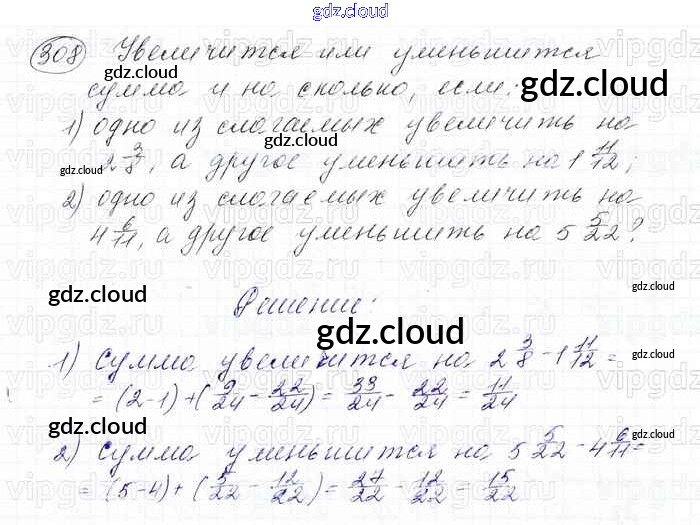 gdz.cloud
308 Увеличится или уменьшится
gdz.cloud gdz.cloud
сумма и на сколько, если:
1) одно из слагаемых увеличить на
2 3/8, а другое уменьшить на 1 11/12;
gdz.cloud gdz.cloud
2) одно из слагаемых увеличить на
4 6/11, а другое уменьшить на 5 5/22?
gdz.cloud gdz.cloud
Решение:
gdz.cloud
1) Сумма увеличится на 2 3/8 - 1 11/12 =
gdz.cloud
= (2-1) + (9/24 - 22/24) = 33/24 - 22/24 = 11/24
gdz.cloud gdz.cloud
2) Сумма уменьшится на 5 5/22 - 4 6/11 =
= (5-4) + (5/22 - 12/22) = 27/22 - 12/22 = 15/22